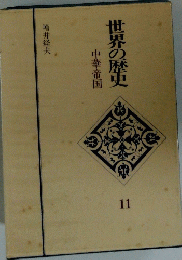 世界の歴史
中華帝国
増井経夫
11